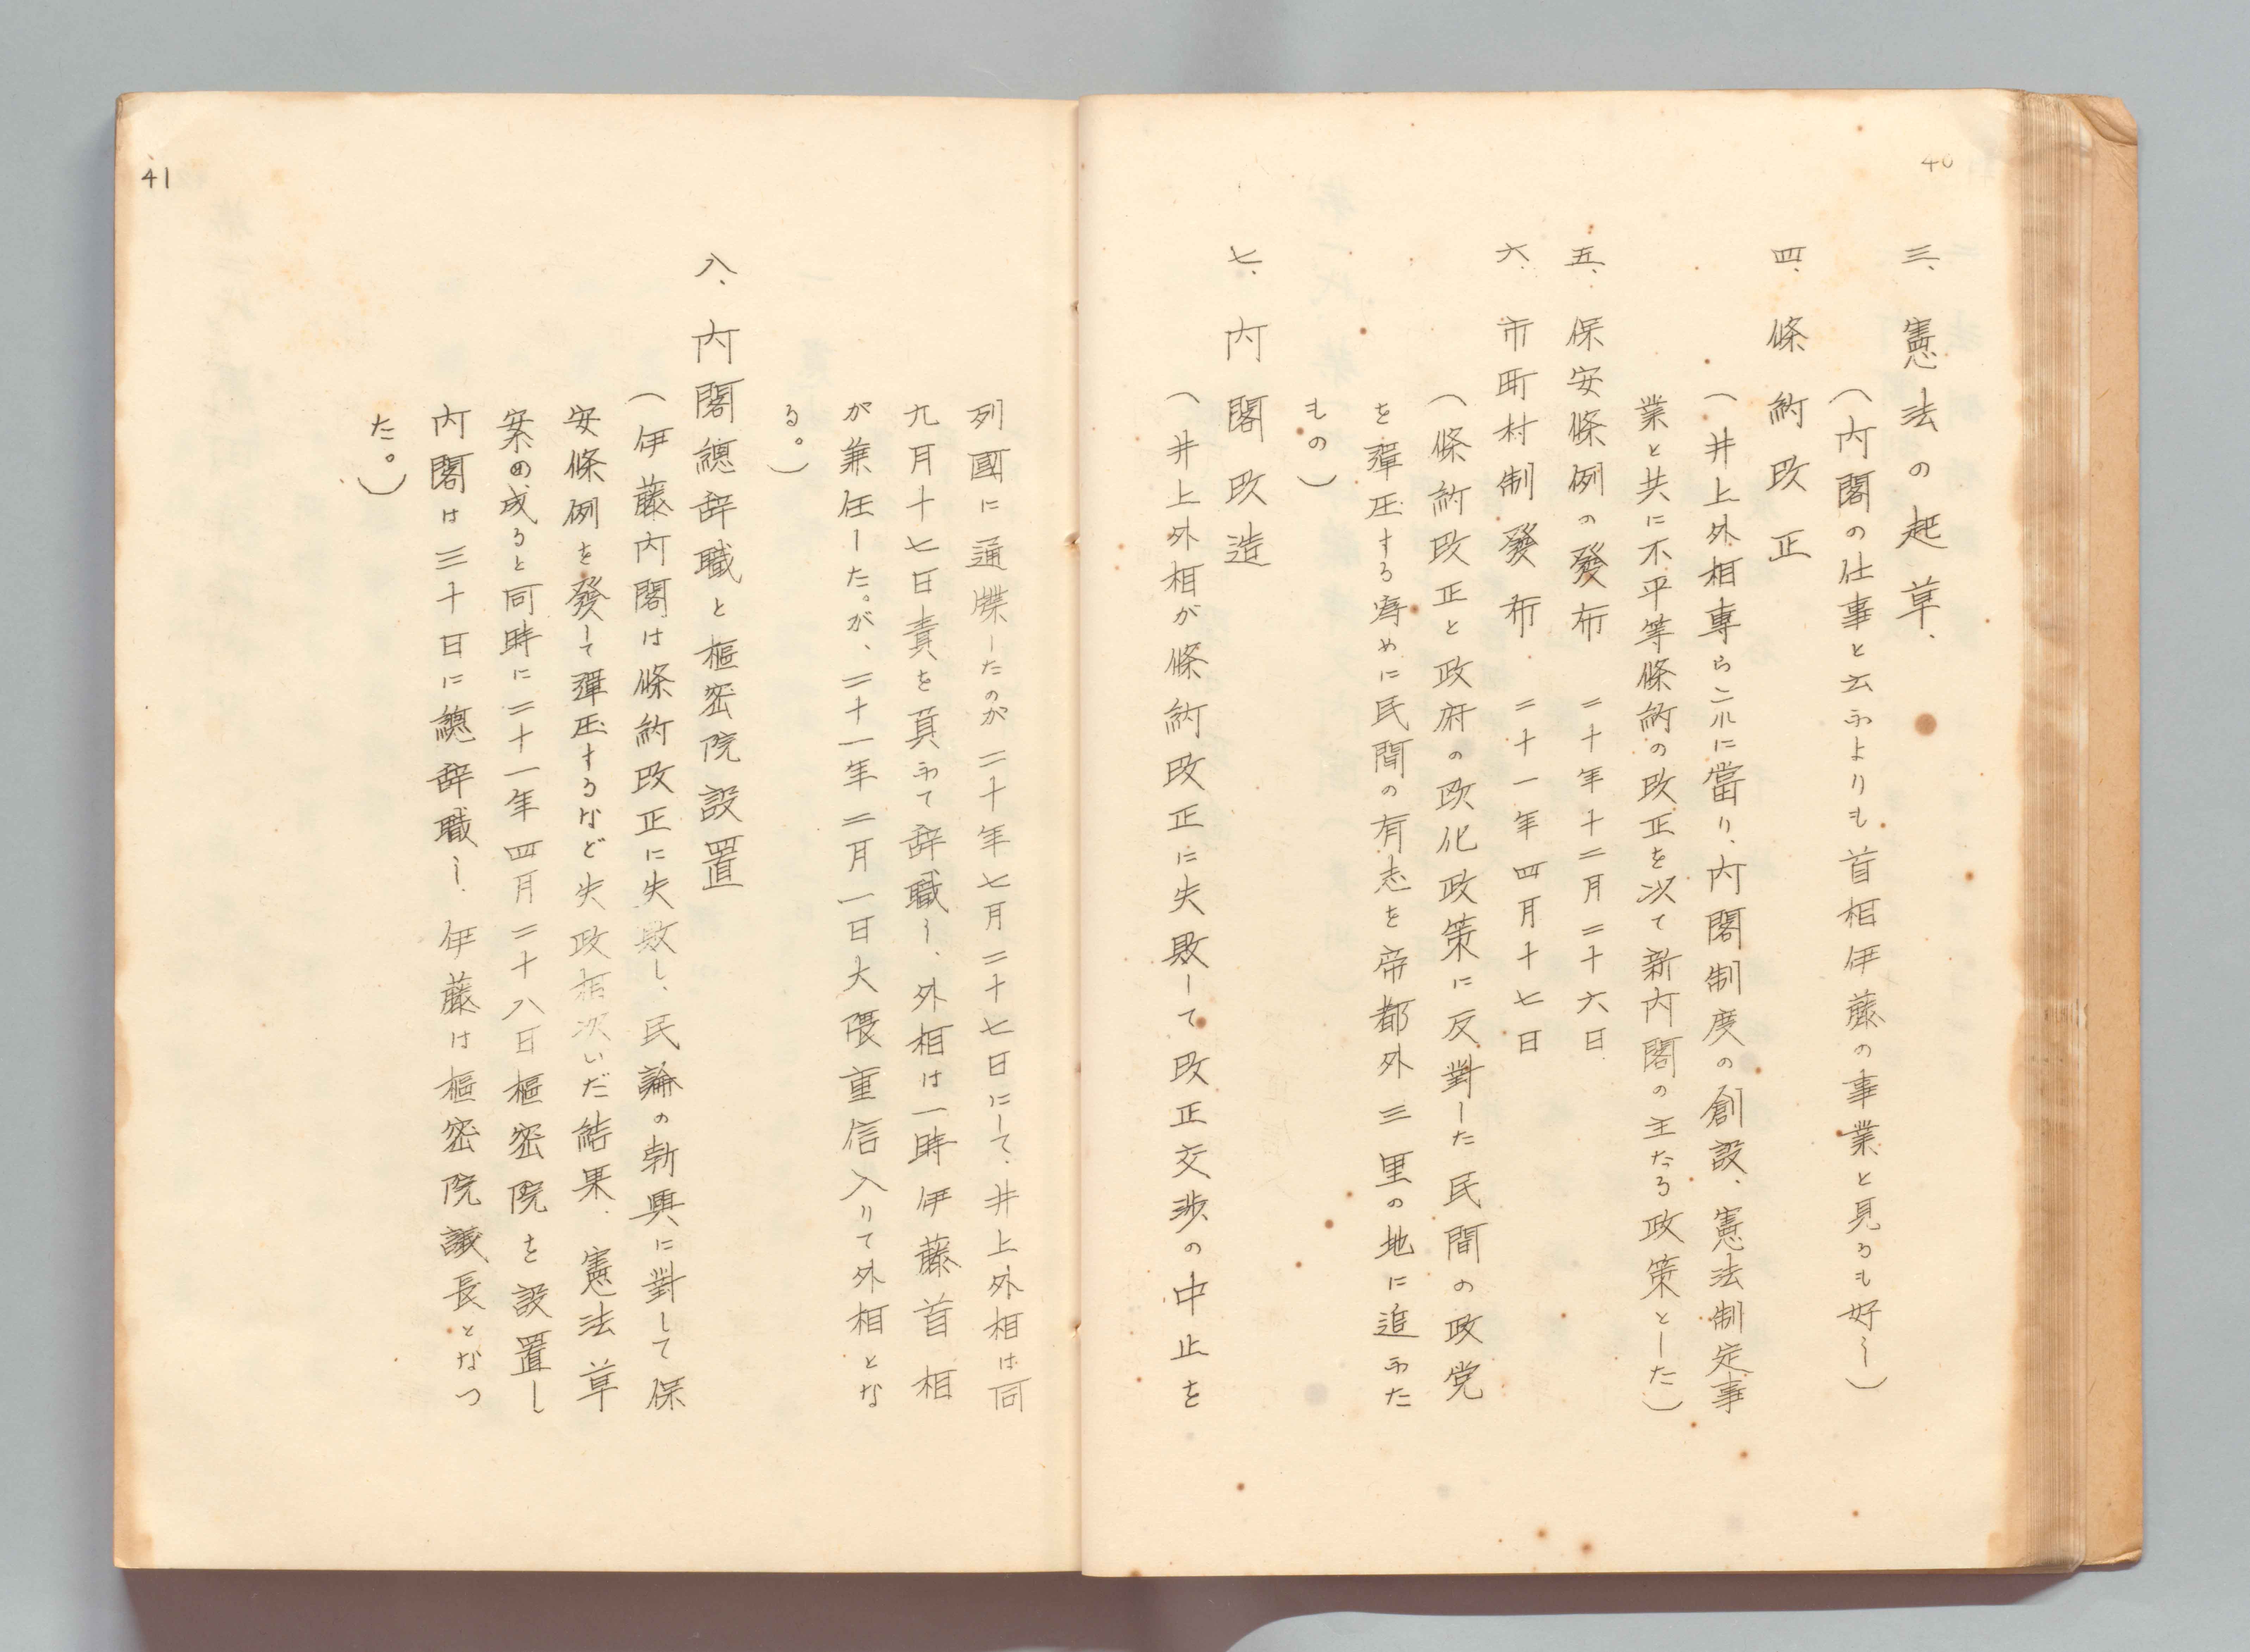 40
三、憲法の起草、
（内閣の仕事と云ふよりも首相伊藤の事業と見るも好し）
四、條約改正
（井上外相専らニ当り、内閣制度の創設、憲法制定事
業と共に不平等條約の改正を以て新内閣の主たる政策とした）
五、保安條例の發布　二十年十二月二十六日
六、市町村制發布．二十一年四月十七日
（條約改正と政府の欧化政策に反對した民間の政党
を彈圧する為めに民間の有志を帝都外三里の地に追ふた
もの）
七、内閣改造
（井上外相が條約改正に失敗して改正交渉の中止を
列國に通牒したのが二十年七月二十七日にして、井上外相は同
九月十七日責を負ふて辞職し、外相は一時伊藤首相
が兼任した。が、二十一年二月一日大隈重信入りて外相とな
る。）
八、内閣總辞職と樞密院設置
（伊藤内閣は條約改正に失敗し、民論の勃興に對して保
安條例を發して彈圧するなど失政相次いだ結果、憲法草
案の成ると同時に二十一年四月二十八日樞密院を設置し
内閣は三十日に總辞職し、伊藤は樞密院議長となつ
た。）
41